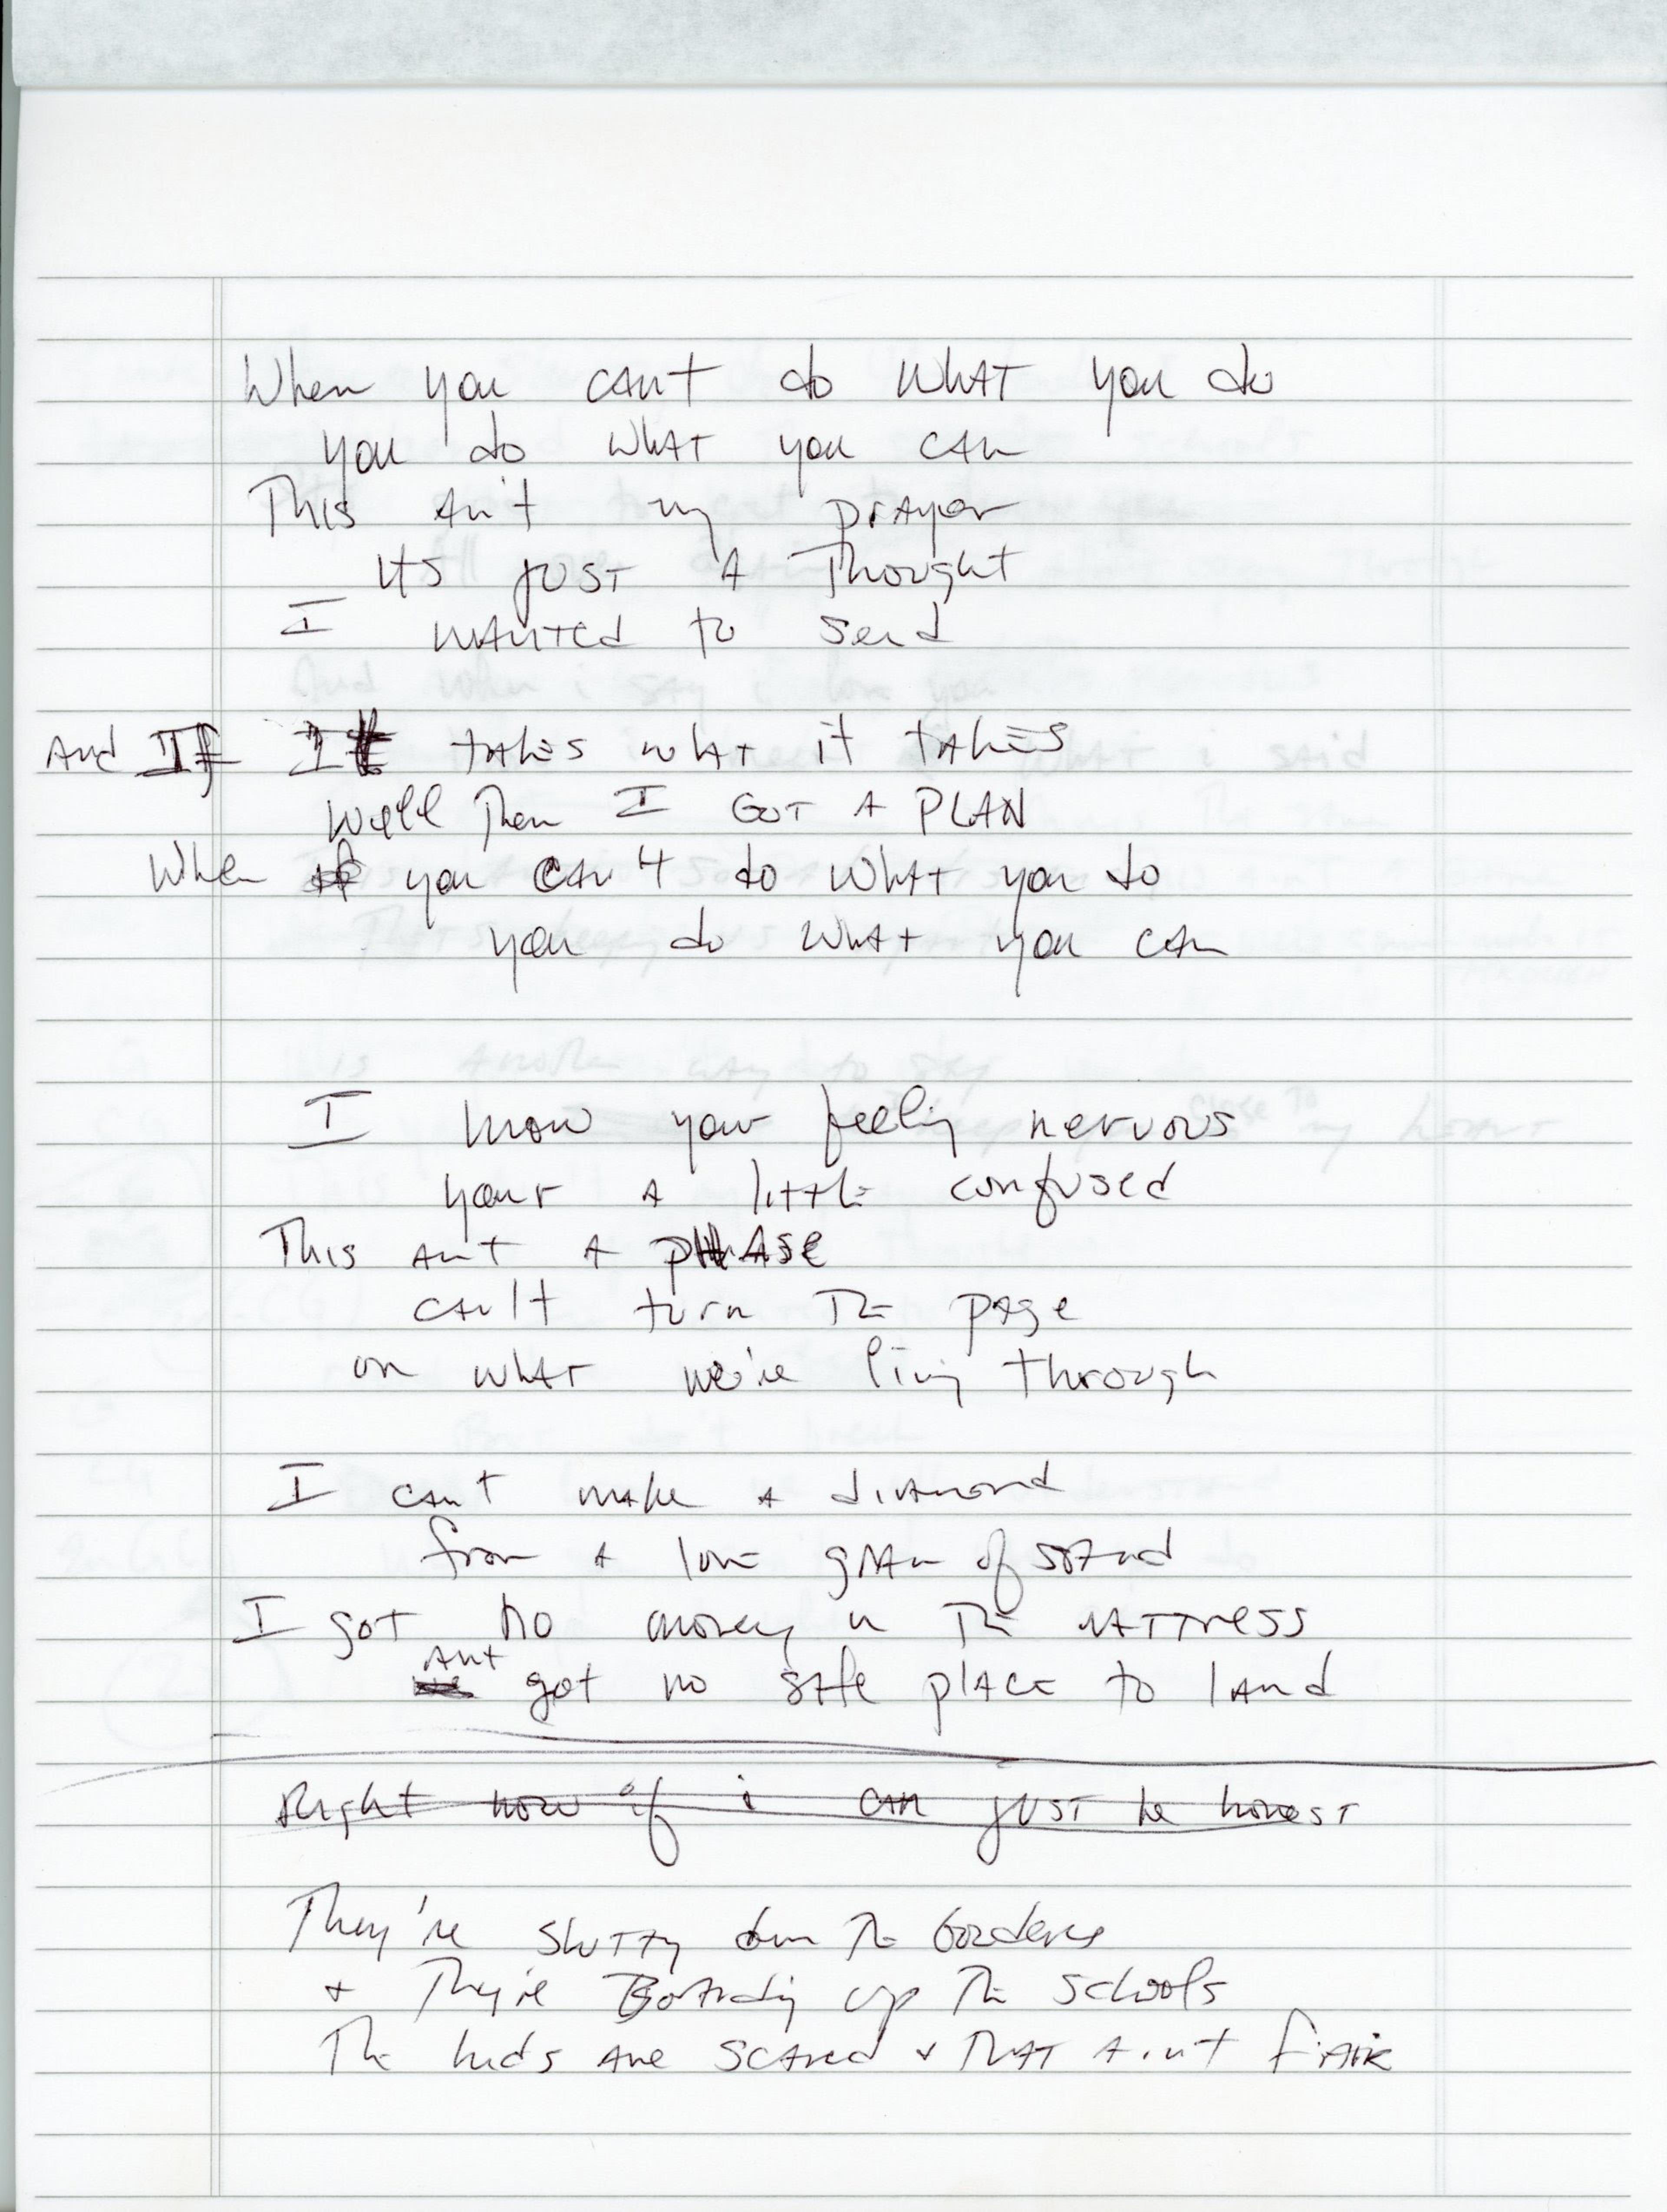 When you can't do what you do
you do what you can
This ain't my prayer
its just a thought
I wanted to send
And If It takes what it takes
Well Then I GOT A PLAN
When you can't do what you do
you do what you can
I know your feeling nervous
your a little confused
This ain't a phase
can't turn the page
on what we're living through
I can't make a diamond
from a lone grain of sand
I got no money in the mattress
Ain't
got no safe place to land
Right now if i can just be honest
They're shutting down the borders
+ They're Boarding up the schools
The kids are scared + that ain't fair